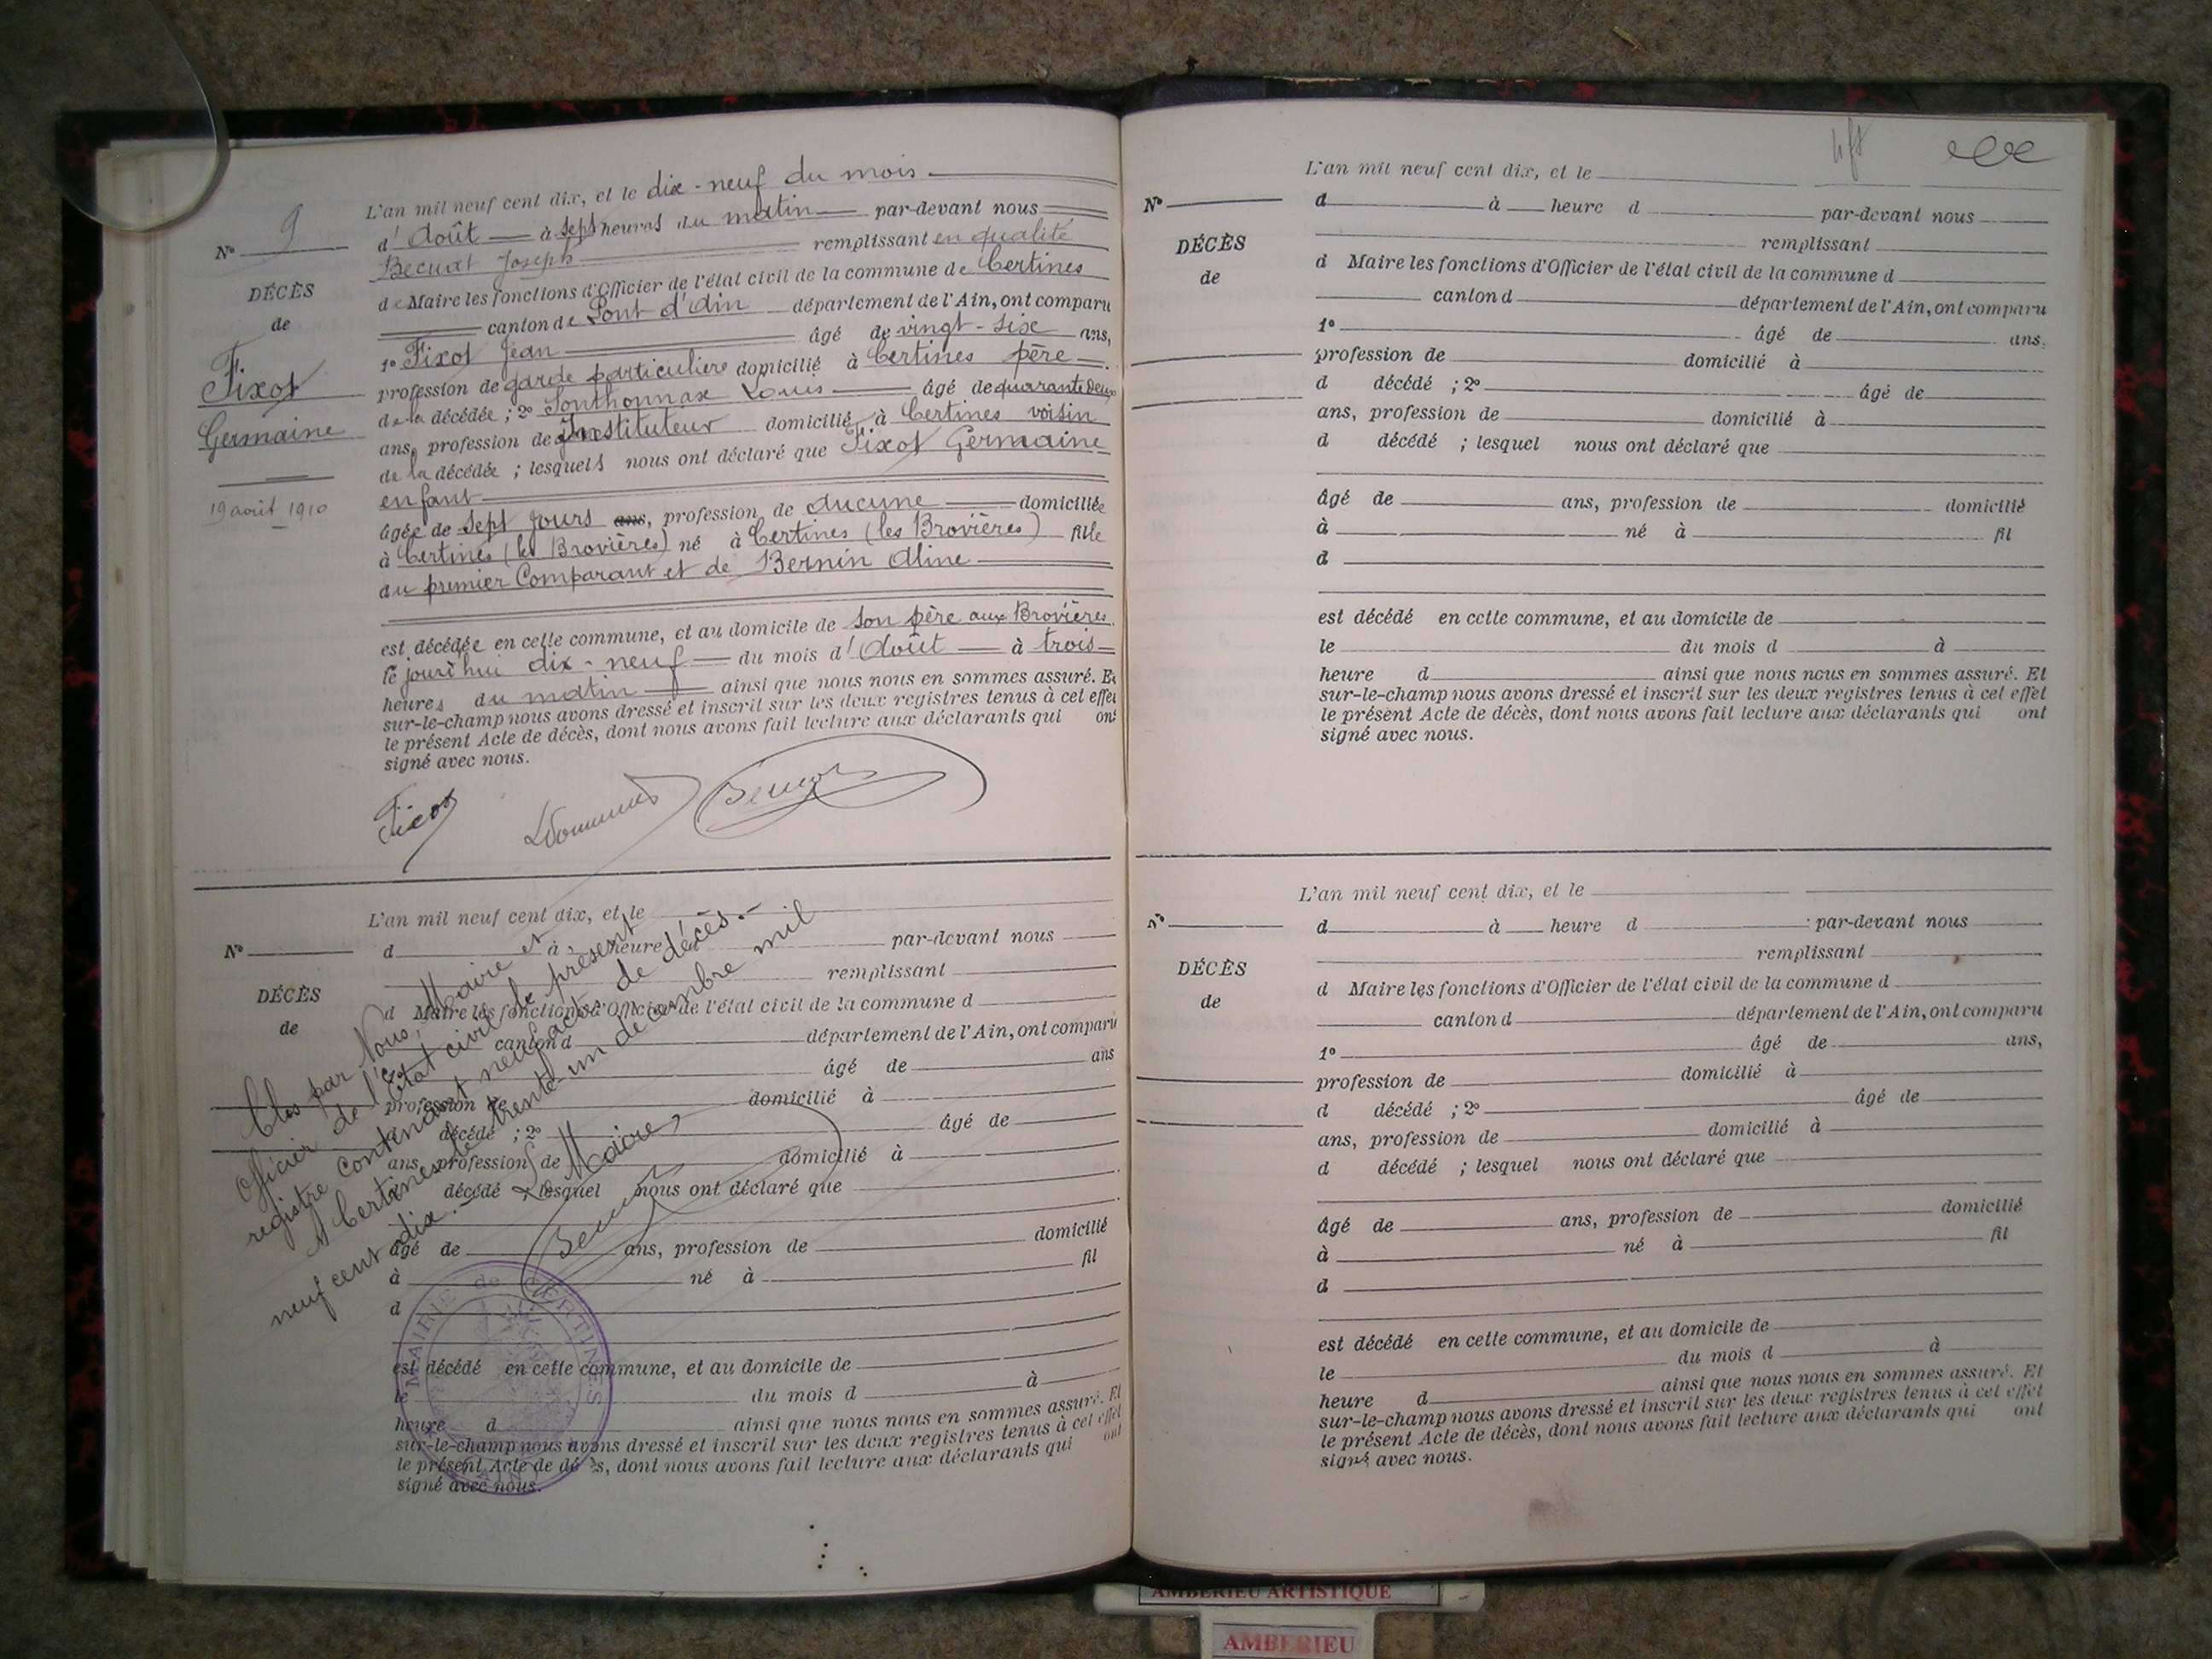 L'an mil neuf cent dix, et le dix-neuf du mois
d'Août à sept heures du matin par-devant nous
Becuat Joseph remplissant en qualité
de Maire les fonctions d'Officier de l'état civil de la commune de Certines
canton de Pont d'Ain département de l'Ain, ont comparu
1º Fixot Jean âgé de vingt-six ans,
profession de garde particuliere domicilié à Certines père
de la décédée ; 2º Sonthonnax Louis âgé de quarante deux
ans, profession de Instituteur domicilié à Certines voisin
de la décédée ; lesquels nous ont déclaré que Fixot Germaine
enfant
âgée de sept jours ans, profession de aucune domiciliée
à Certines (les Brovières) né à Certines (les Brovières) fille
du premier Comparant et de Bernin Aline
est décédée en cette commune, et au domicile de son père aux Brovières
le jourd'hui dix-neuf du mois d'Août à trois
heures du matin ainsi que nous nous en sommes assuré. Et
sur-le-champ nous avons dressé et inscrit sur les deux registres tenus à cet effet
le présent Acte de décès, dont nous avons fait lecture aux déclarants qui ont
signé avec nous.
Nº 9
DÉCÈS
de
Fixot
Germaine
19 août 1910
Fixot
L'an mil neuf cent dix, et le
Nº
d à heure d par-devant nous
remplissant
DÉCÈS
de
d Maire les fonctions d'Officier de l'état civil de la commune d
canton d département de l'Ain, ont comparu
âgé de ans
profession de domicilié à
décédé ; 2º âgé de
ans, profession de domicilié à
décédé ; lesquel nous ont déclaré que
âgé de ans, profession de domicilié
à né à fil
d
est décédé en cette commune, et au domicile de
le du mois d à
heure d ainsi que nous nous en sommes assuré. Et
sur-le-champ nous avons dressé et inscrit sur les deux registres tenus à cet effet
le présent Acte de décès, dont nous avons fait lecture aux déclarants qui ont
signé avec nous.
Clos par Nous, Maire et
Officier de l'Etat civil le présent
registre contenant neuf actes de décès.-
A Certines le trente-un décembre mil
neuf cent dix.-
Le Maire,
MAIRIE de CERTINES
L'an mil neuf cent dix, et le
Nº
d à heure d par-devant nous
remplissant
DÉCÈS
de
d Maire les fonctions d'Officier de l'état civil de la commune d
canton d département de l'Ain, ont comparu
1º âgé de ans.
profession de domicilié à
d décédé ; 2º âgé de
ans, profession de domicilié à
d décédé ; lesquel nous ont déclaré que
âgé de ans, profession de domicilié
à né à fil
d
est décédé en cette commune, et au domicile de
le du mois d à
heure d ainsi que nous nous en sommes assuré. Et
sur-le-champ nous avons dressé et inscrit sur les deux registres tenus à cet effet
le présent Acte de décès, dont nous avons fait lecture aux déclarants qui ont
signé avec nous.
L'an mil neuf cent dix, et le
Nº
d à heure d par-devant nous
remplissant
DÉCÈS
de
d Maire les fonctions d'Officier de l'état civil de la commune d
canton d département de l'Ain, ont comparu
1º âgé de ans,
profession de domicilié à
d décédé ; 2º âgé de
ans, profession de domicilié à
d décédé ; lesquel nous ont déclaré que
âgé de ans, profession de domicilié
à né à fil
d
est décédé en cette commune, et au domicile de
le du mois d à
heure d ainsi que nous nous en sommes assuré. Et
sur-le-champ nous avons dressé et inscrit sur les deux registres tenus à cet effet
le présent Acte de décès, dont nous avons fait lecture aux déclarants qui ont
signé avec nous.
AMBERIEU ARTISTIQUE
AMBERIEU